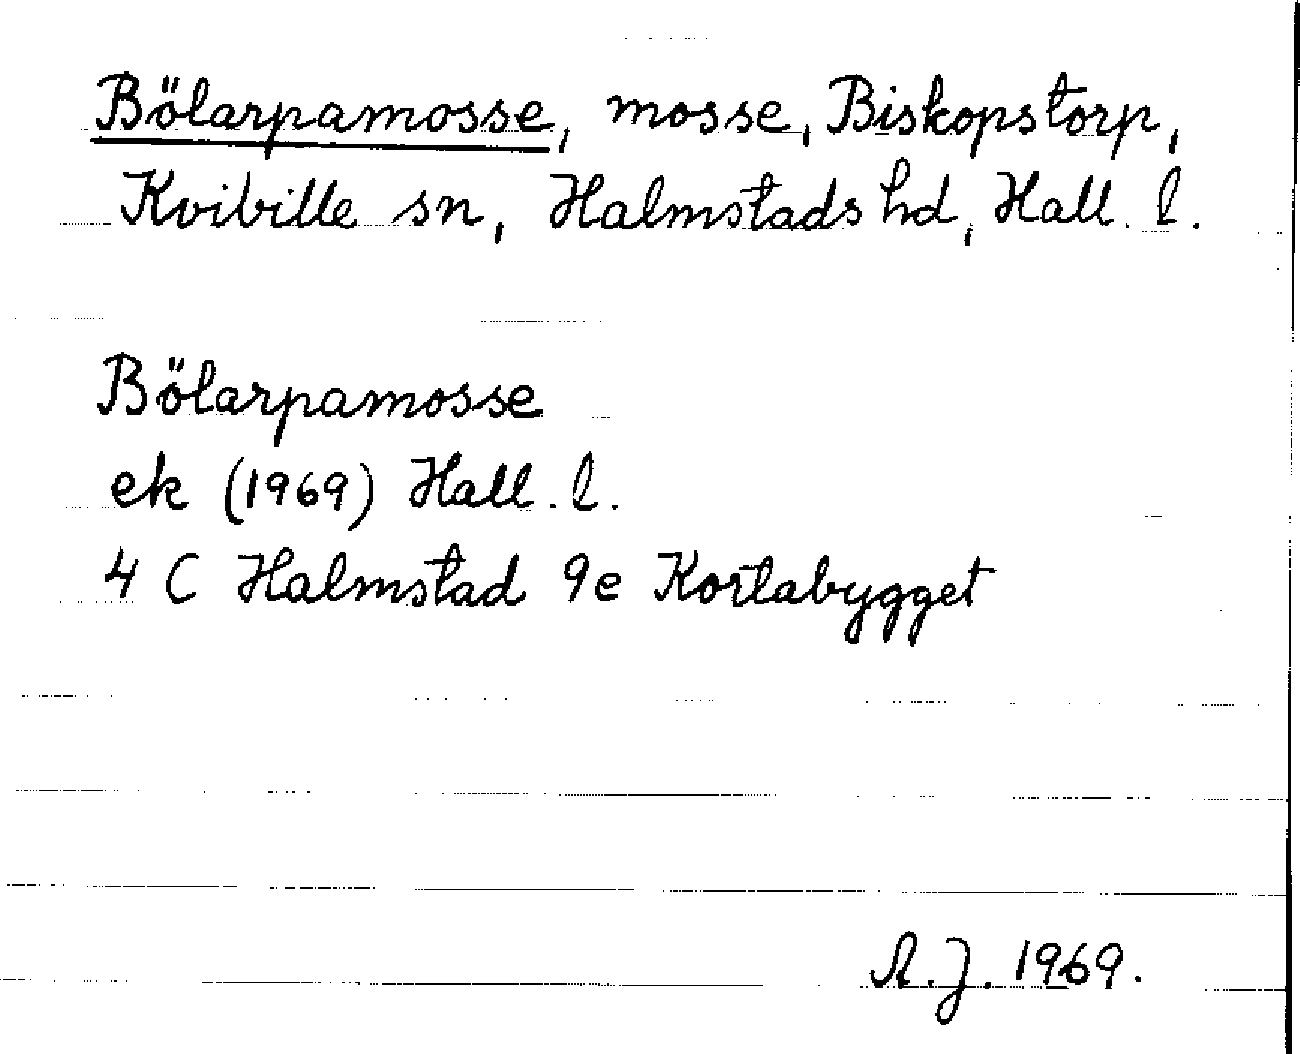 Bölarpamosse, mosse, Biskopstorp,
Kvibille sn, Halmstads hd, Hall. l.
Bölarpamosse
ek (1969) Hall. l.
4 C Halmstad 9e Kortabygget
A.J. 1969.